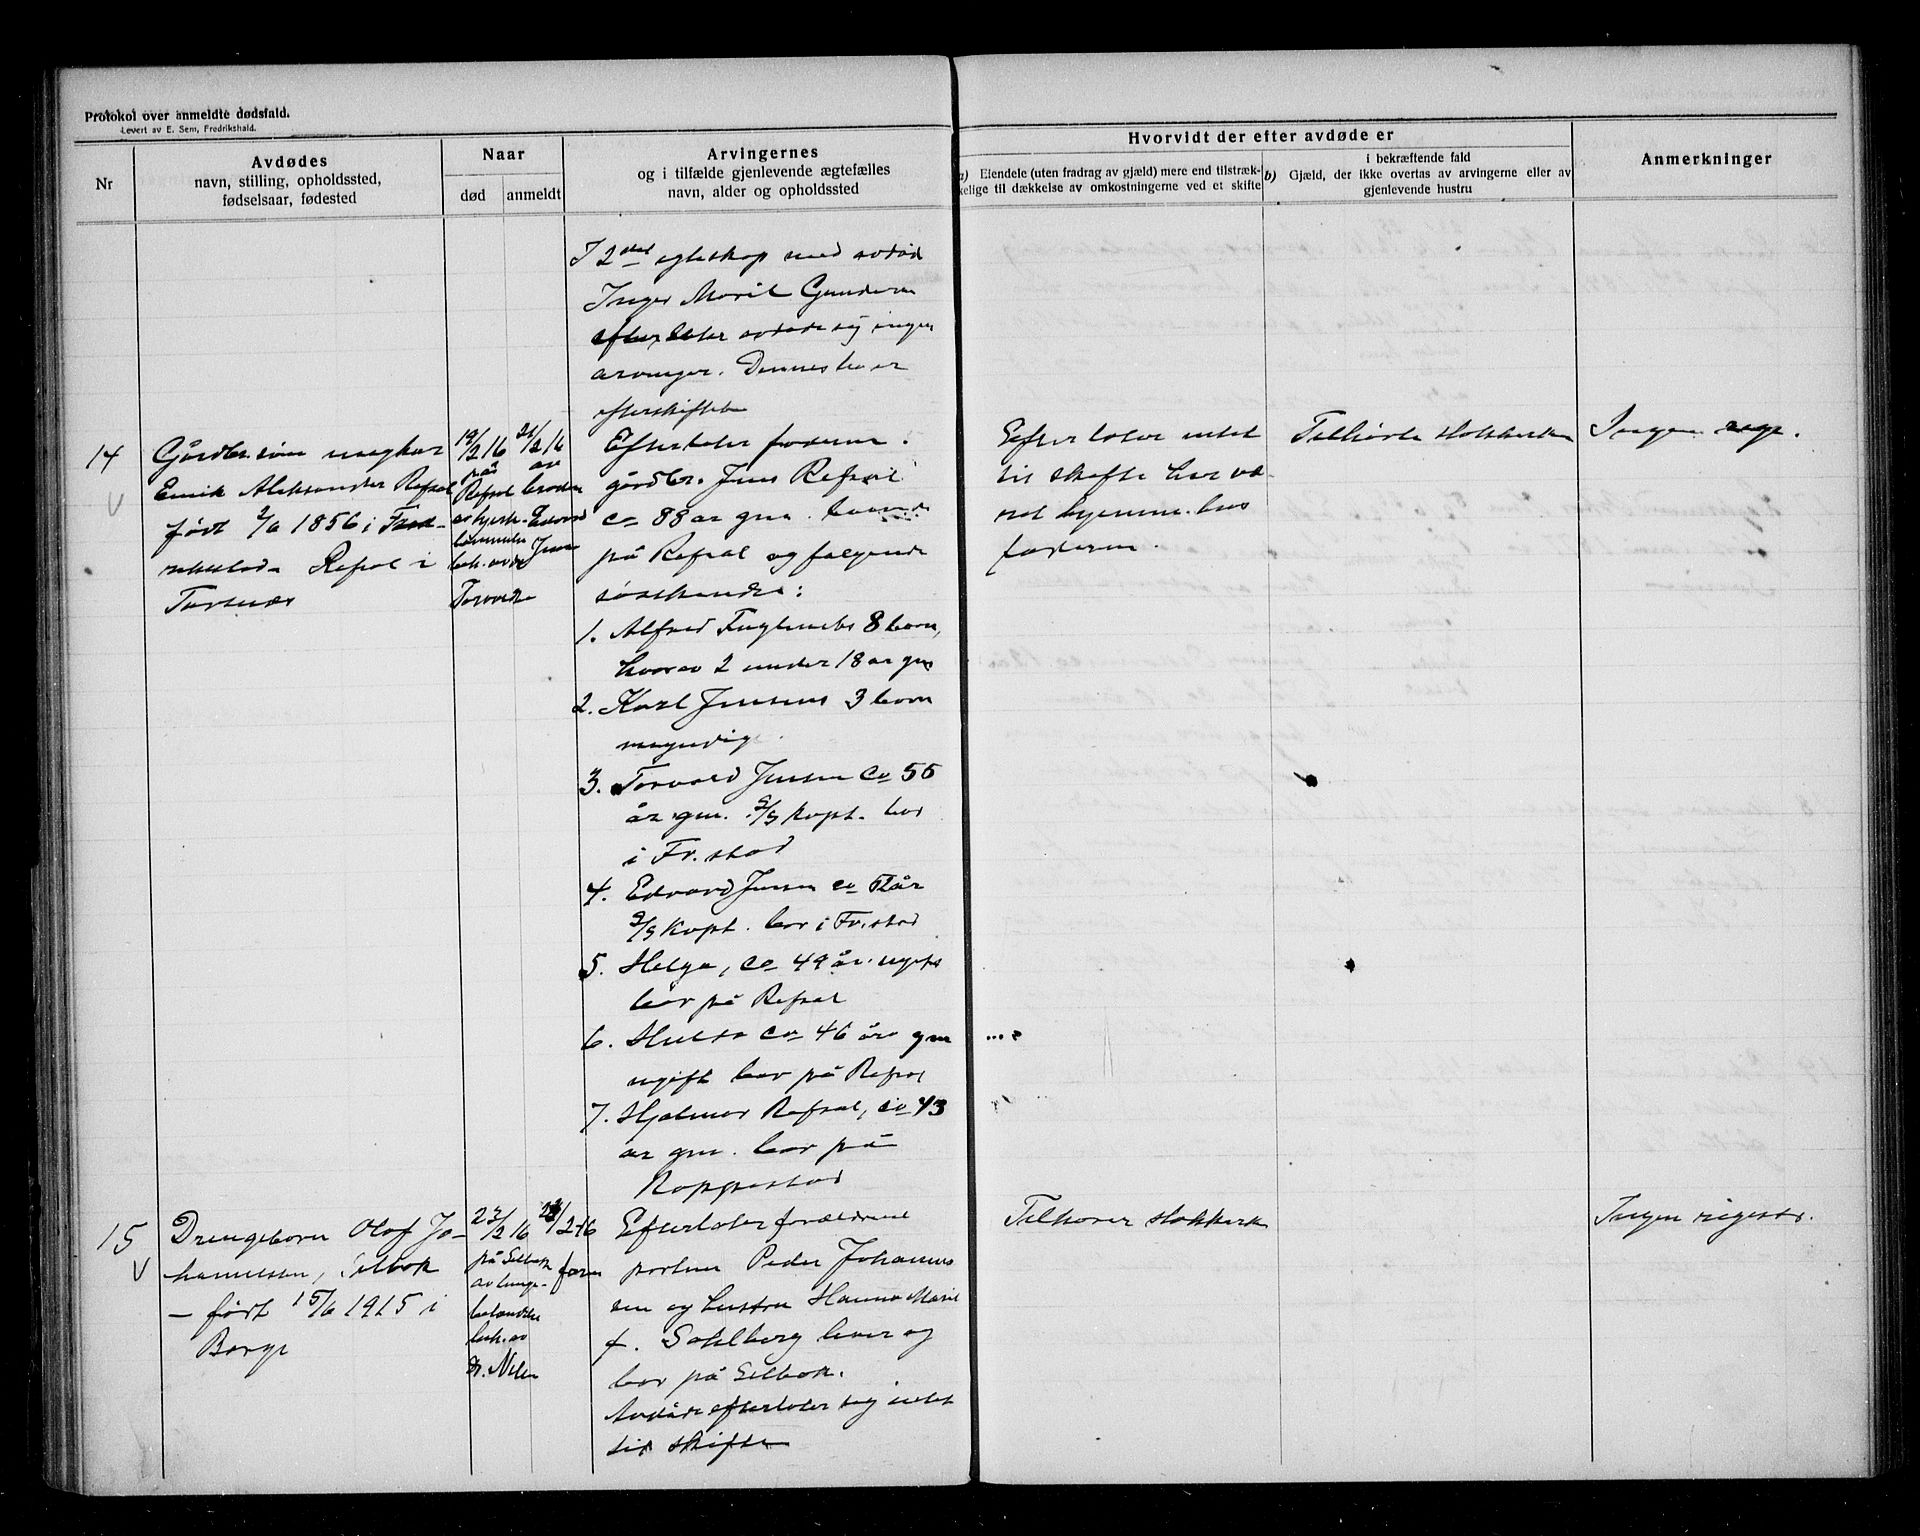 Protokol over anmeldte dødsfald.
Levert av E. Sem, Fredrikshald.
Nr
Avdødes
navn, stilling, opholdssted,
fødselsaar, fødested
Naar
død
anmeldt
Arvingernes
og i tilfælde gjenlevende ægtefælles
navn, alder og opholdssted
Hvorvidt der efter avdøde er
a) Eiendele (uten fradrag av gjæld) mere end tilstræk-
kelige til dækkelse av omkostningerne ved et skifte
i bekræftende fald
b) Gjæld, der ikke overtas av arvingerne eller av
gjenlevende hustru
Anmerkninger
I 2det egteskap med avdød
Inger Moril Gundersen
efterlater avdøde sig ingen
arvinger. Dennes bo er
efterskiftet
14
Gårdbr. søn ungkar
Emil Aleksander Refsal
født 2/6 1856 i
Refsal i
Torsnæs
19/2 16
på
Refsal
av hjerte-
lammelse
bek. av dr
Torvald
21/2 16
av
broderen
Edvard
Jensen
Efterlater faderen.
gårdbr. Jens Refsal
ca 88 år gm. boende
på Refsal og følgende
søskende:
1. Alfred 8 barn,
hvorav 2 under 18 år gm
2. Karl Jensens 3 barn
myndig
3. Torvald Jensen ca 55
år gm. S/S kapt. bor
i Fr.stad
4. Edvard Jensen ca år
S/S kapt. bor i Fr.stad
5. Helga, ca 49 år ugift
bor på Refsal
6. Hulda ca 46 år gm
ugift bor på Refsal
7. Hjalmar Refsal, ca 43
år gm. bor på
Roppestad
Efterlater intet
til skifte har væ-
ret hjemme hos
faderen.
Tilhørte statskirken
Ingen reg.
15
Drengebarn Olaf Jo-
hannessen, Selbak
— født 15/6 1915 i
Borge
23/2 16
på Selbak
av lunge-
betændelse
bek. av
dr. Nilsen
2/2 16
faren
Efterlater forældrene
portner Peder Johannes
sen og hustru Hanna Marie
f. Sahlberg lever og
bor på Selbak.
Avdøde efterlater sig intet
til skifte
Tilhører statskirken
Ingen registr.